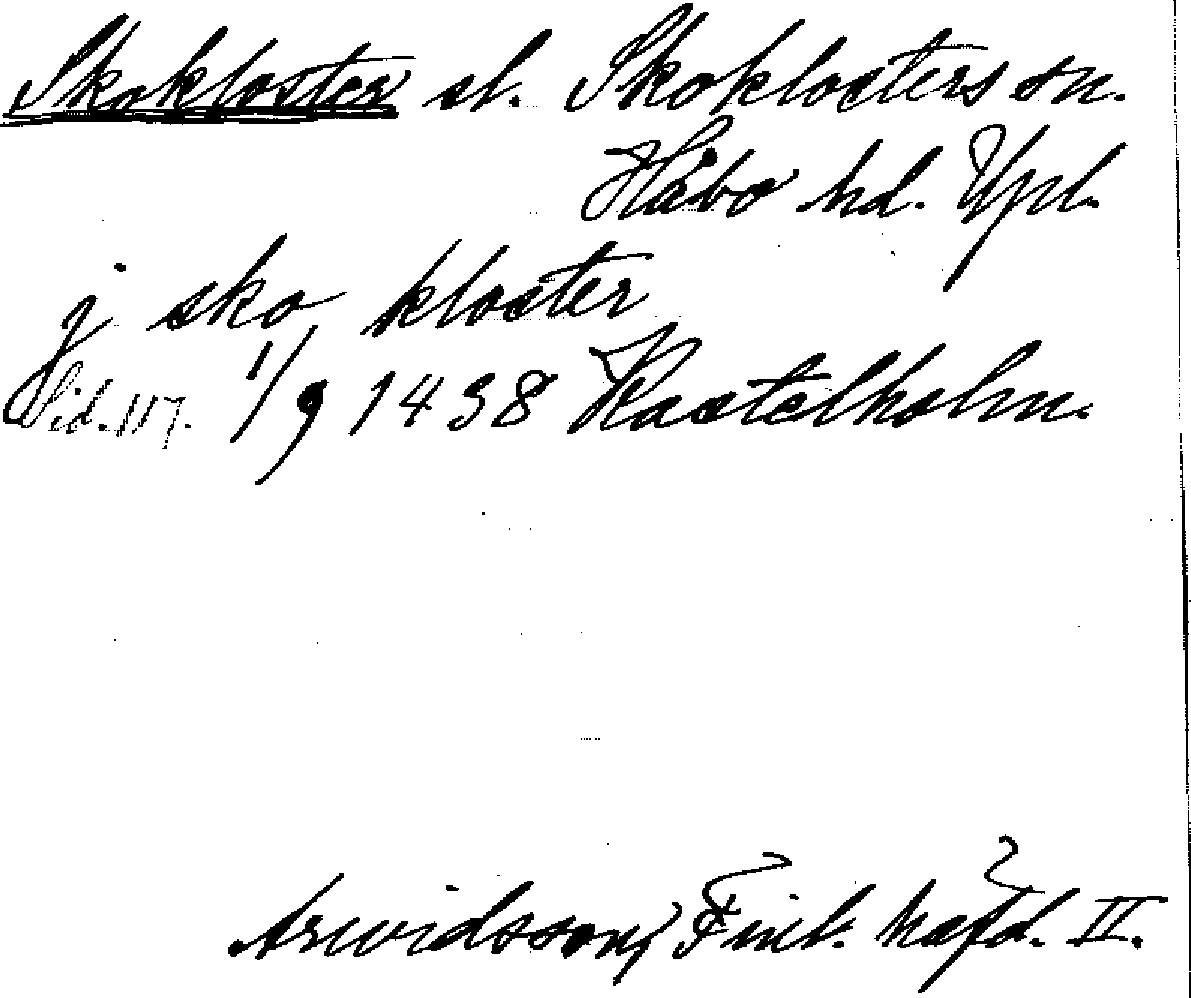 Skokloster sl. Skoklosters sn.
Håbo hd. Upl.
j sko kloster
Sid. 117. 1/9 1438 Kastelholm.
Arwidsson, Finl. hafd. II.